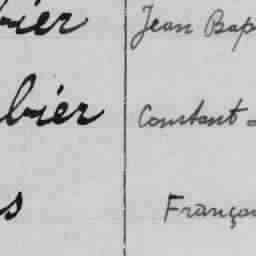 bier Jean Bap
bier Constant
s Françoi